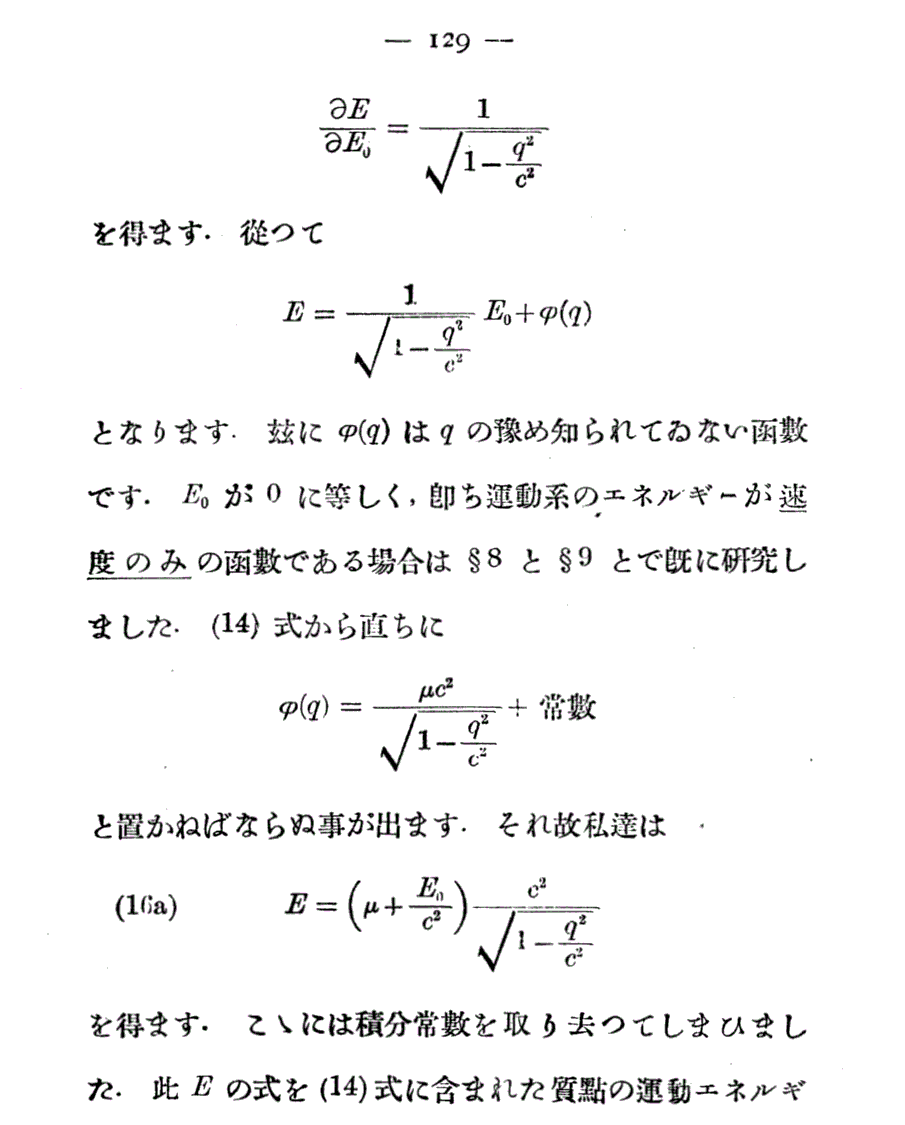 — 129 —
∂E/∂E₀ = 1/√(1−q²/c²)
を得ます. 從つて
E = 1/√(1−q²/c²) E₀+φ(q)
となります. 玆に φ(q) は q の豫め知られてゐない函數
です. E₀ が 0 に等しく, 卽ち運動系のエネルギーが速
度のみの函數である場合は §8 と §9 とで旣に硏究し
ました. (14) 式から直ちに
φ(q) = μc²/√(1−q²/c²) + 常數
と置かねばならぬ事が出ます. それ故私達は
(16a) E = (μ+E₀/c²) c²/√(1−q²/c²)
を得ます. こゝには積分常數を取り去つてしまひまし
た. 此 E の式を (14) 式に含まれた質點の運動エネルギ